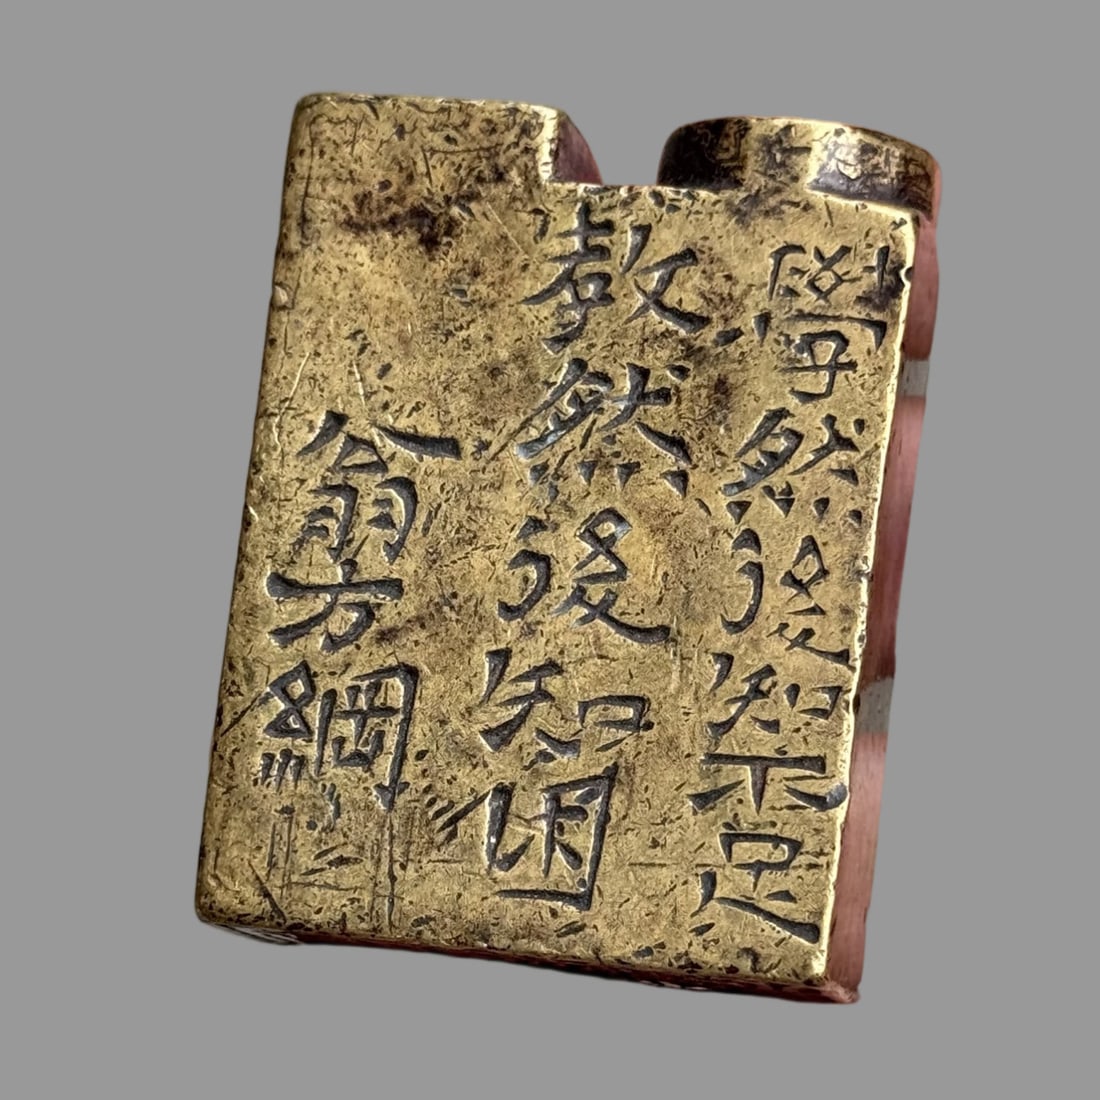 學然後知不足
教然後知困
翁方綱